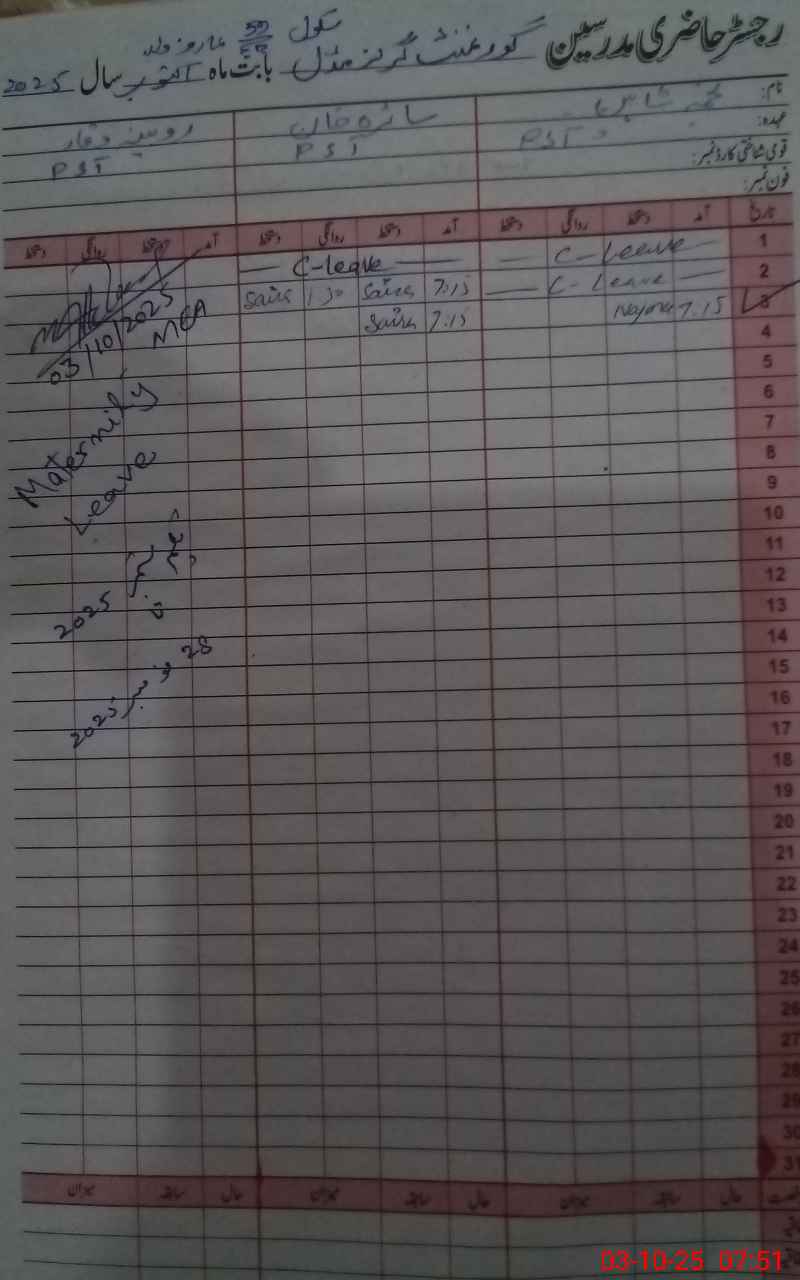 رجسٹر حاضری مدرسین گورنمنٹ گرلز مڈل سکول
بابت ماہ اکتوبر سال 2025
نام:
سائرہ خان
عہدہ:
PST
PST
PST
قومی شناختی کارڈ نمبر:
فون نمبر:
تاریخ آمد دستخط روانگی دستخط آمد دستخط روانگی دستخط آمد دستخط روانگی دستخط
1 C-Leave C-Leave
2 C-Leave 7:15 Saira 1:30 Saira
3 7:15 Najma 7:15 Saira
4
5
6
7
8
9
10
11
12
13
14
15
16
17
18
19
20
21
22
23
24
25
26
27
28
29
30
31
03/10/2025
MEA
Maternity
Leave
2025
28 نومبر 2025
حال سابقہ میزان حال سابقہ میزان حال سابقہ میزان
03-10-25 07:51